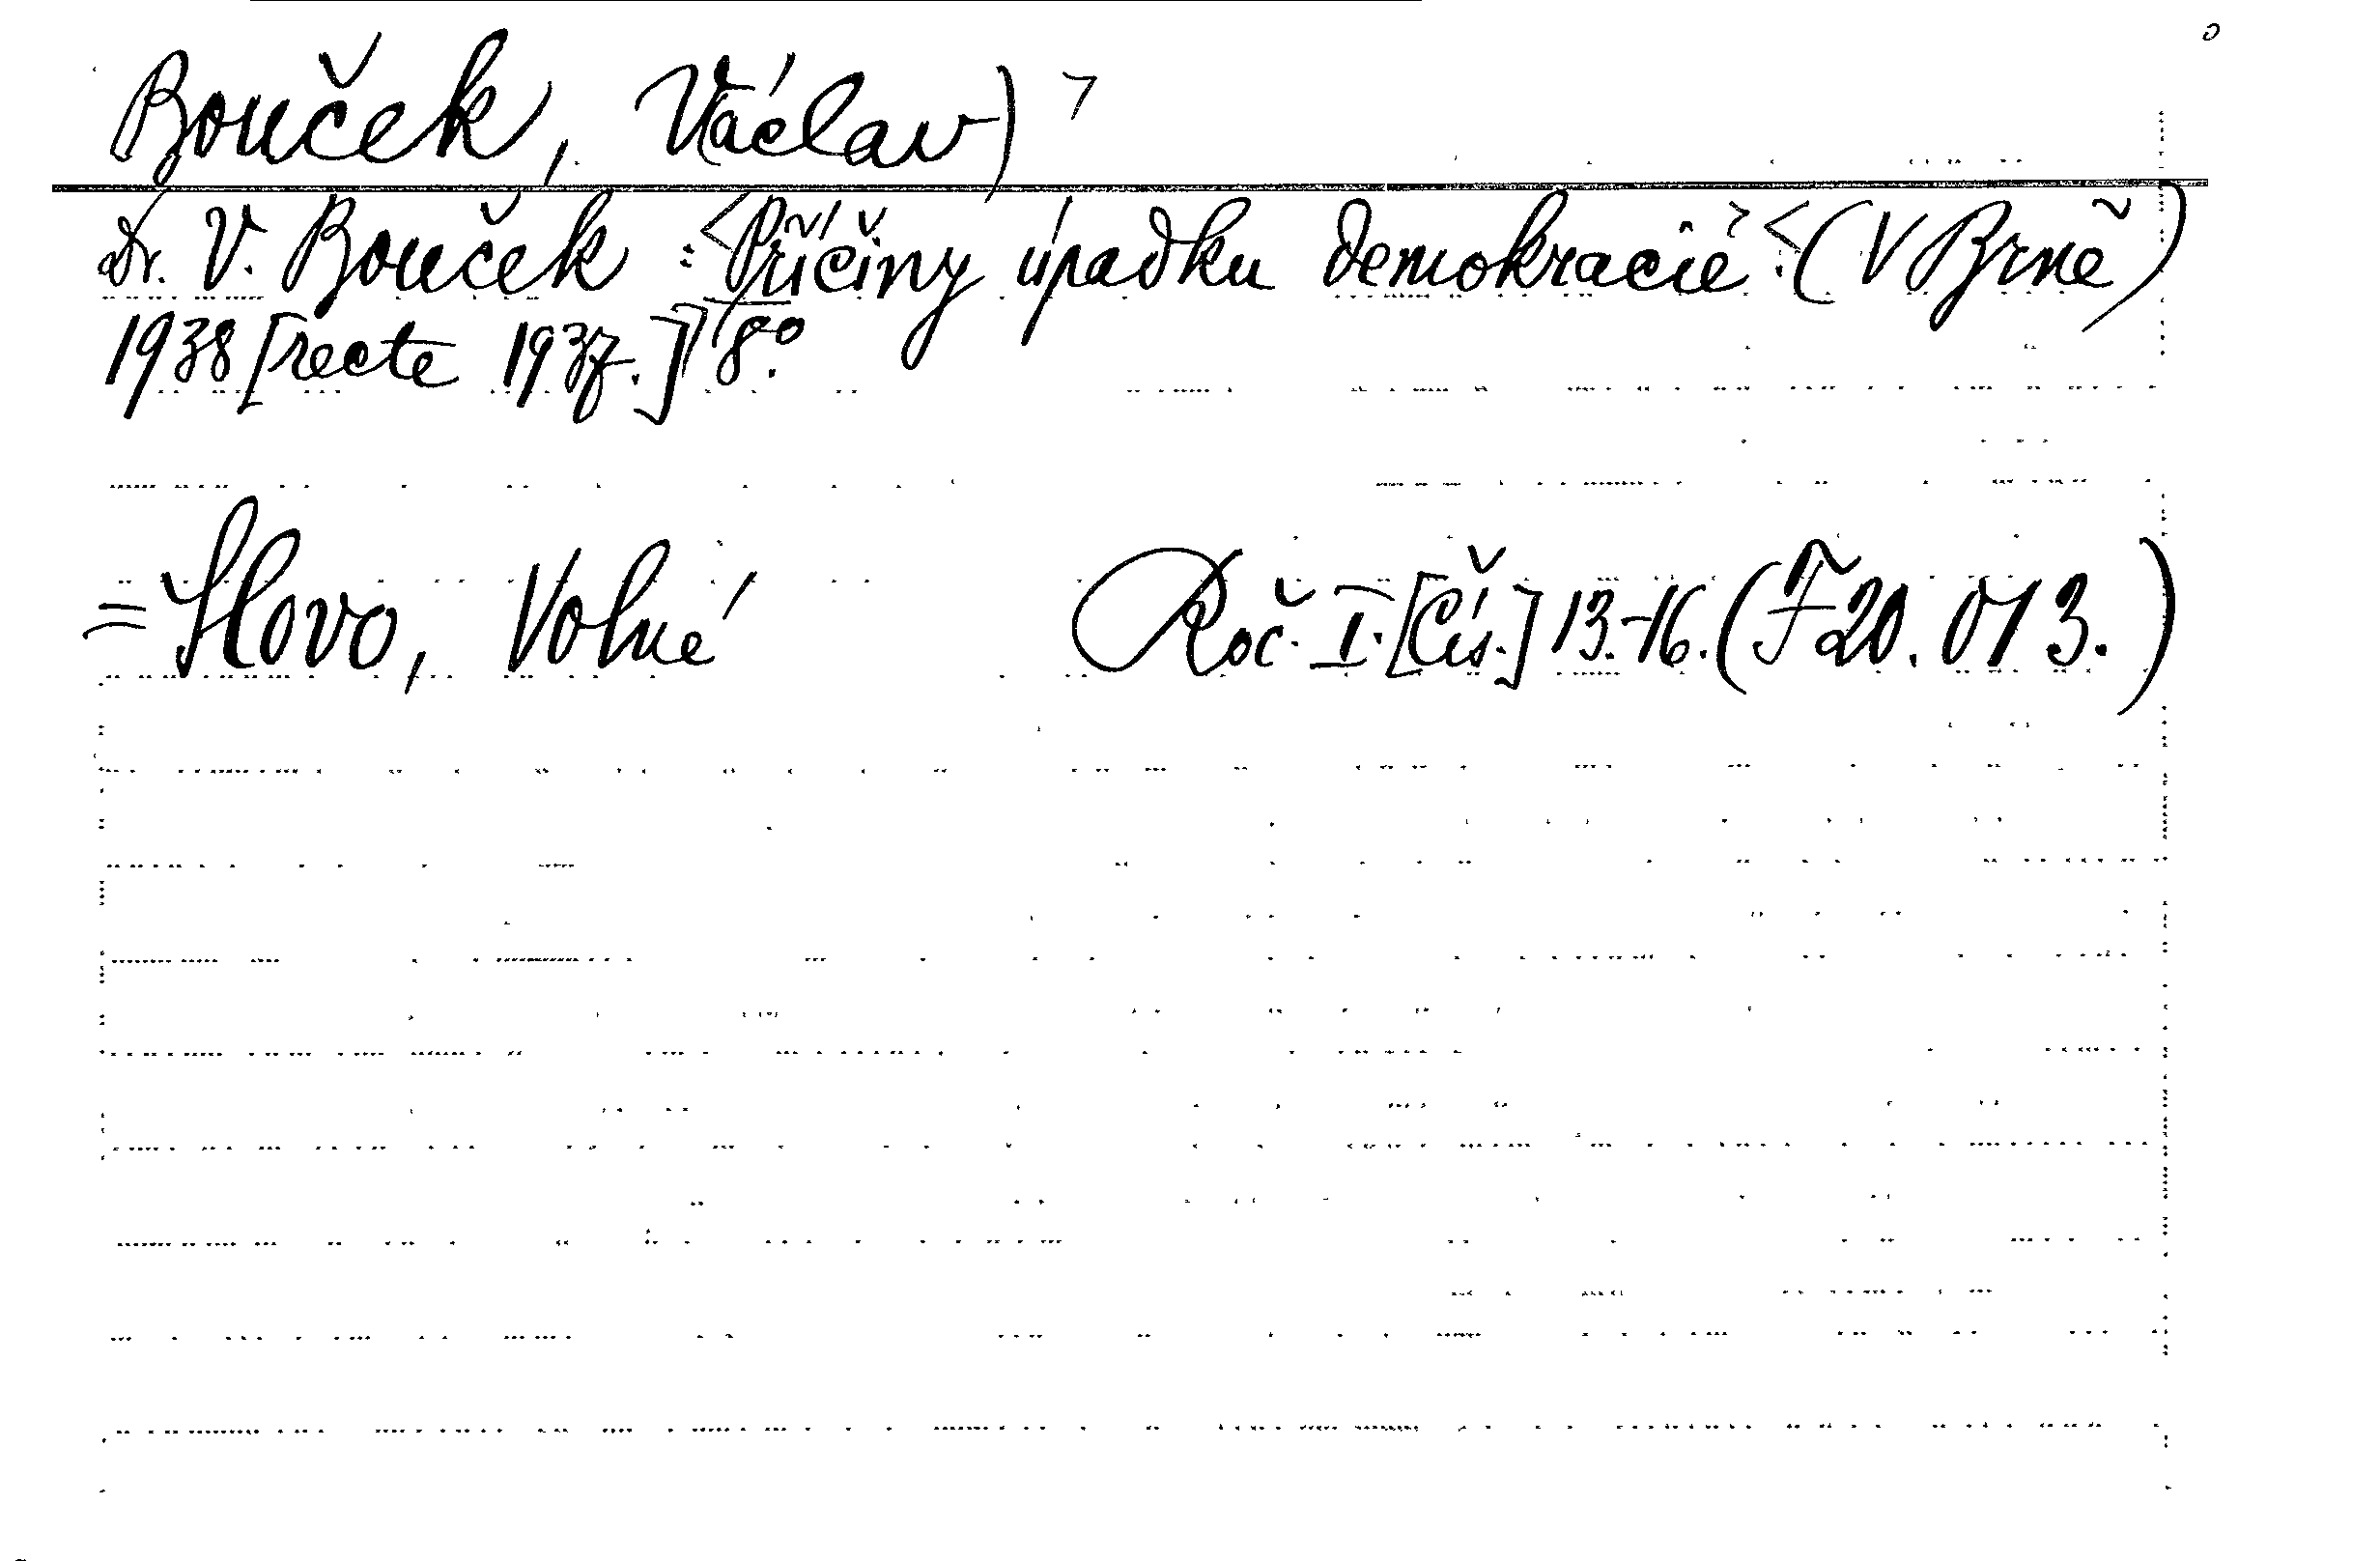 Bouček, Václav)
Dr. V. Bouček : Příčiny úpadku demokracie : (V Brně)
1938 [recte 1937.] 8°.
= Slovo, Volné Roč. I. [Čís.] 13.-16. (F 20.013.)